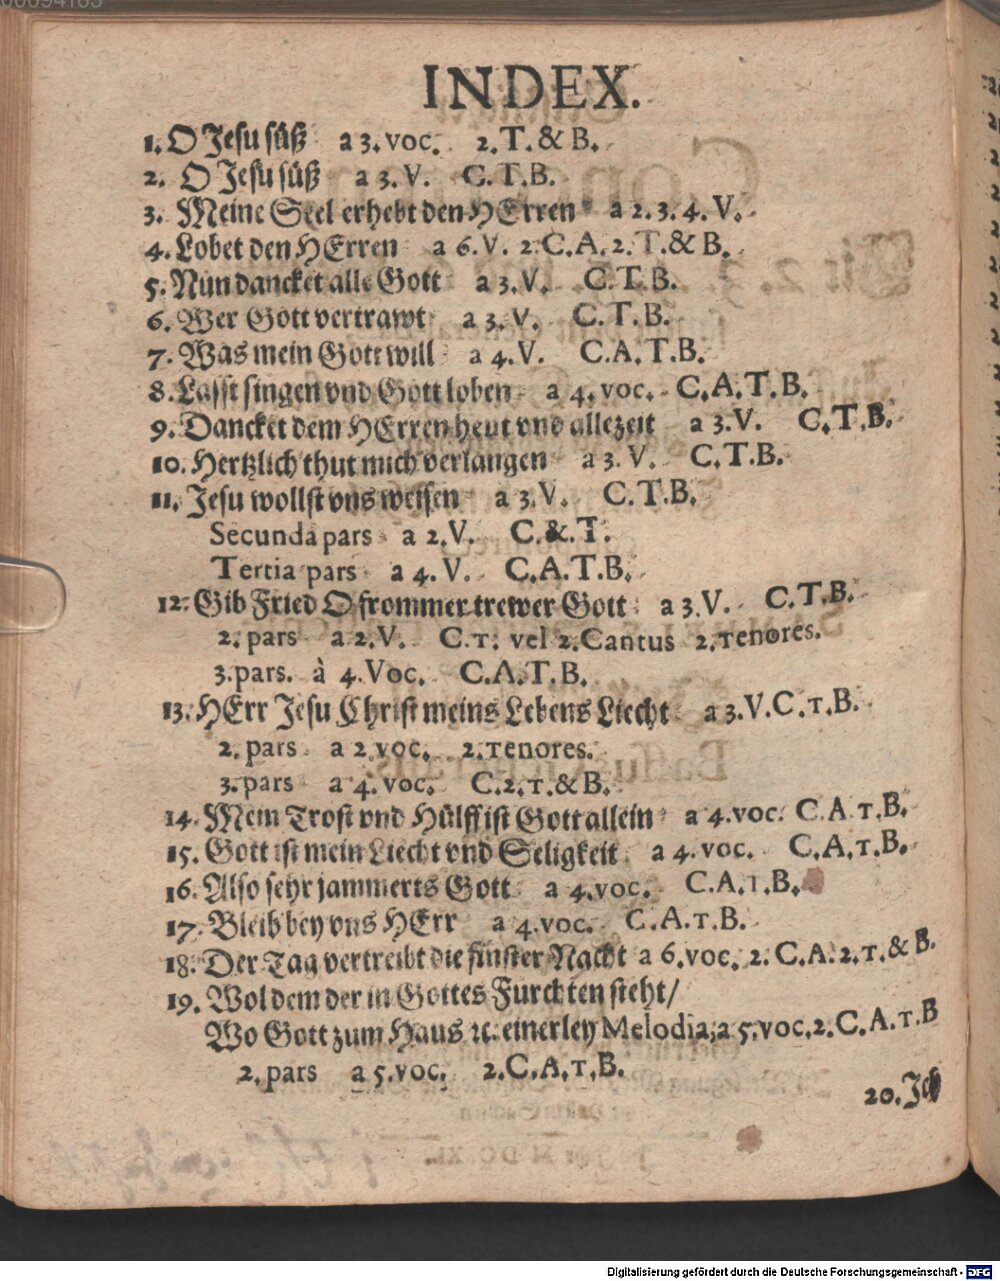 INDEX.
1. O Jesu süß a 3. voc. 2. T. & B.
2. O Jesu süß a 3. V. C. T. B.
3. Meine Seel erhebt den HErren a 2. 3. 4. V.
4. Lobet den HErren a 6. V. 2. C. A. 2. T. & B.
5. Nun dancket alle Gott a 3. V. C. T. B.
6. Wer Gott vertrawt a 3. V. C. T. B.
7. Was mein Gott will a 4. V. C. A. T. B.
8. Lasst singen vnd Gott loben a 4. voc. C. A. T. B.
9. Dancket dem HErren heut vnd allezeit a 3. V. C. T. B.
10. Hertzlich thut mich verlangen a 3. V. C. T. B.
11. Jesu wollst vns weisen a 3. V. C. T. B.
Secunda pars a 2. V. C. & T.
Tertia pars a 4. V. C. A. T. B.
12. Gib Fried O frommer trewer Gott a 3. V. C. T. B.
2. pars a 2. V. C. T. vel 2. Cantus 2. Tenores.
3. pars. à 4. Voc. C. A. T. B.
13. HErr Jesu Christ meins Lebens Liecht a 3. V. C. T. B.
2. pars a 2 voc. 2. Tenores.
3. pars a 4. voc. C. 2. T. & B.
14. Mein Trost vnd Hülff ist Gott allein a 4. voc. C. A. T. B.
15. Gott ist mein Liecht vnd Seligkeit a 4. voc. C. A. T. B.
16. Also sehr jammerts Gott a 4. voc. C. A. T. B.
17. Bleib bey vns HErr a 4. voc. C. A. T. B.
18. Der Tag vertreibt die finster Nacht a 6. voc. 2. C. A. 2. T. & B.
19. Wol dem der in Gottes Furchten steht/
Wo Gott zum Haus ꝛc. einerley Melodia, a 5. voc. 2. C. A. T. B
2. pars a 5. voc. 2. C. A. T. B.
20. Ich
Digitalisierung gefördert durch die Deutsche Forschungsgemeinschaft - DFG